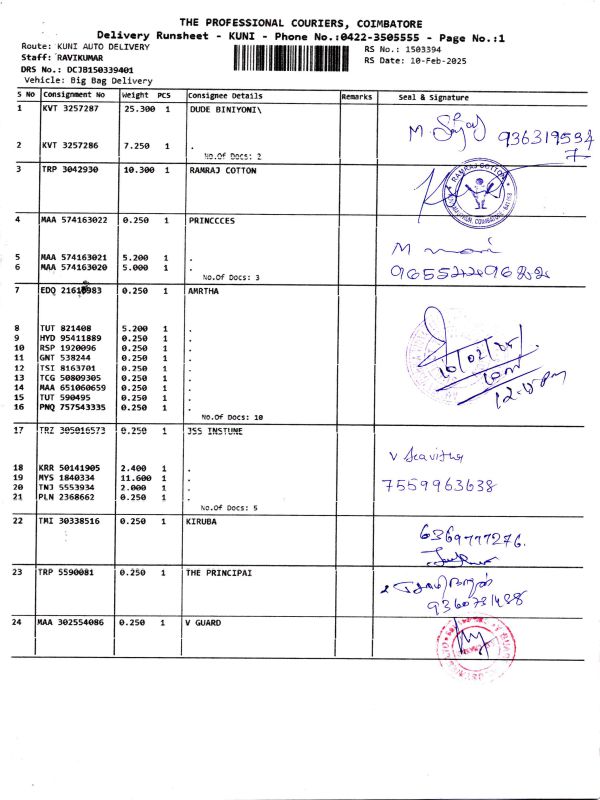 THE PROFESSIONAL COURIERS, COIMBATORE
Delivery Runsheet - KUNI - Phone No.:0422-3505555 - Page No.:1
Route: KUNI AUTO DELIVERY
RS No.: 1503394
Staff: RAVIKUMAR
RS Date: 10-Feb-2025
DRS No.: DCJB150339401
Vehicle: Big Bag Delivery
S No Consignment No Weight PCS Consignee Details Remarks Seal & Signature
1 KVT 3257287 25.300 1 DUDE BINIYONI\
M
936319534
7-
2 KVT 3257286 7.250 1 .
No.Of Docs: 2
3 TRP 3042930 10.300 1 RAMRAJ COTTON
RAMRAJ COTTON
4 MAA 574163022 0.250 1 PRINCCCES
M mani
5 MAA 574163021 5.200 1 .
6 MAA 574163020 5.000 1 .
No.Of Docs: 3
7 EDQ 0.250 1 AMRTHA
8 TUT 821408 5.200 1 .
9 HYD 95411889 0.250 1 .
10 RSP 1920096 0.250 1 .
11 GNT 538244 0.250 1 .
10/02/25
12 TSI 8163701 0.250 1 .
13 TCG 50809305 0.250 1 .
14 MAA 651060659 0.250 1 .
15 TUT 590495 0.250 1 .
16 PNQ 757543335 0.250 1 .
No.Of Docs: 10
17 TRZ 305016573 0.250 1 JSS INSTUNE
18 KRR 50141905 2.400 1 .
19 MYS 1840334 11.600 1 .
20 TNJ 5553934 2.000 1 .
7559963638
21 PLN 2368662 0.250 1 .
No.Of Docs: 5
22 TMI 30338516 0.250 1 KIRUBA
6369777276.
23 TRP 5590081 0.250 1 THE PRINCIPAI
9360731488
24 MAA 302554086 0.250 1 V GUARD